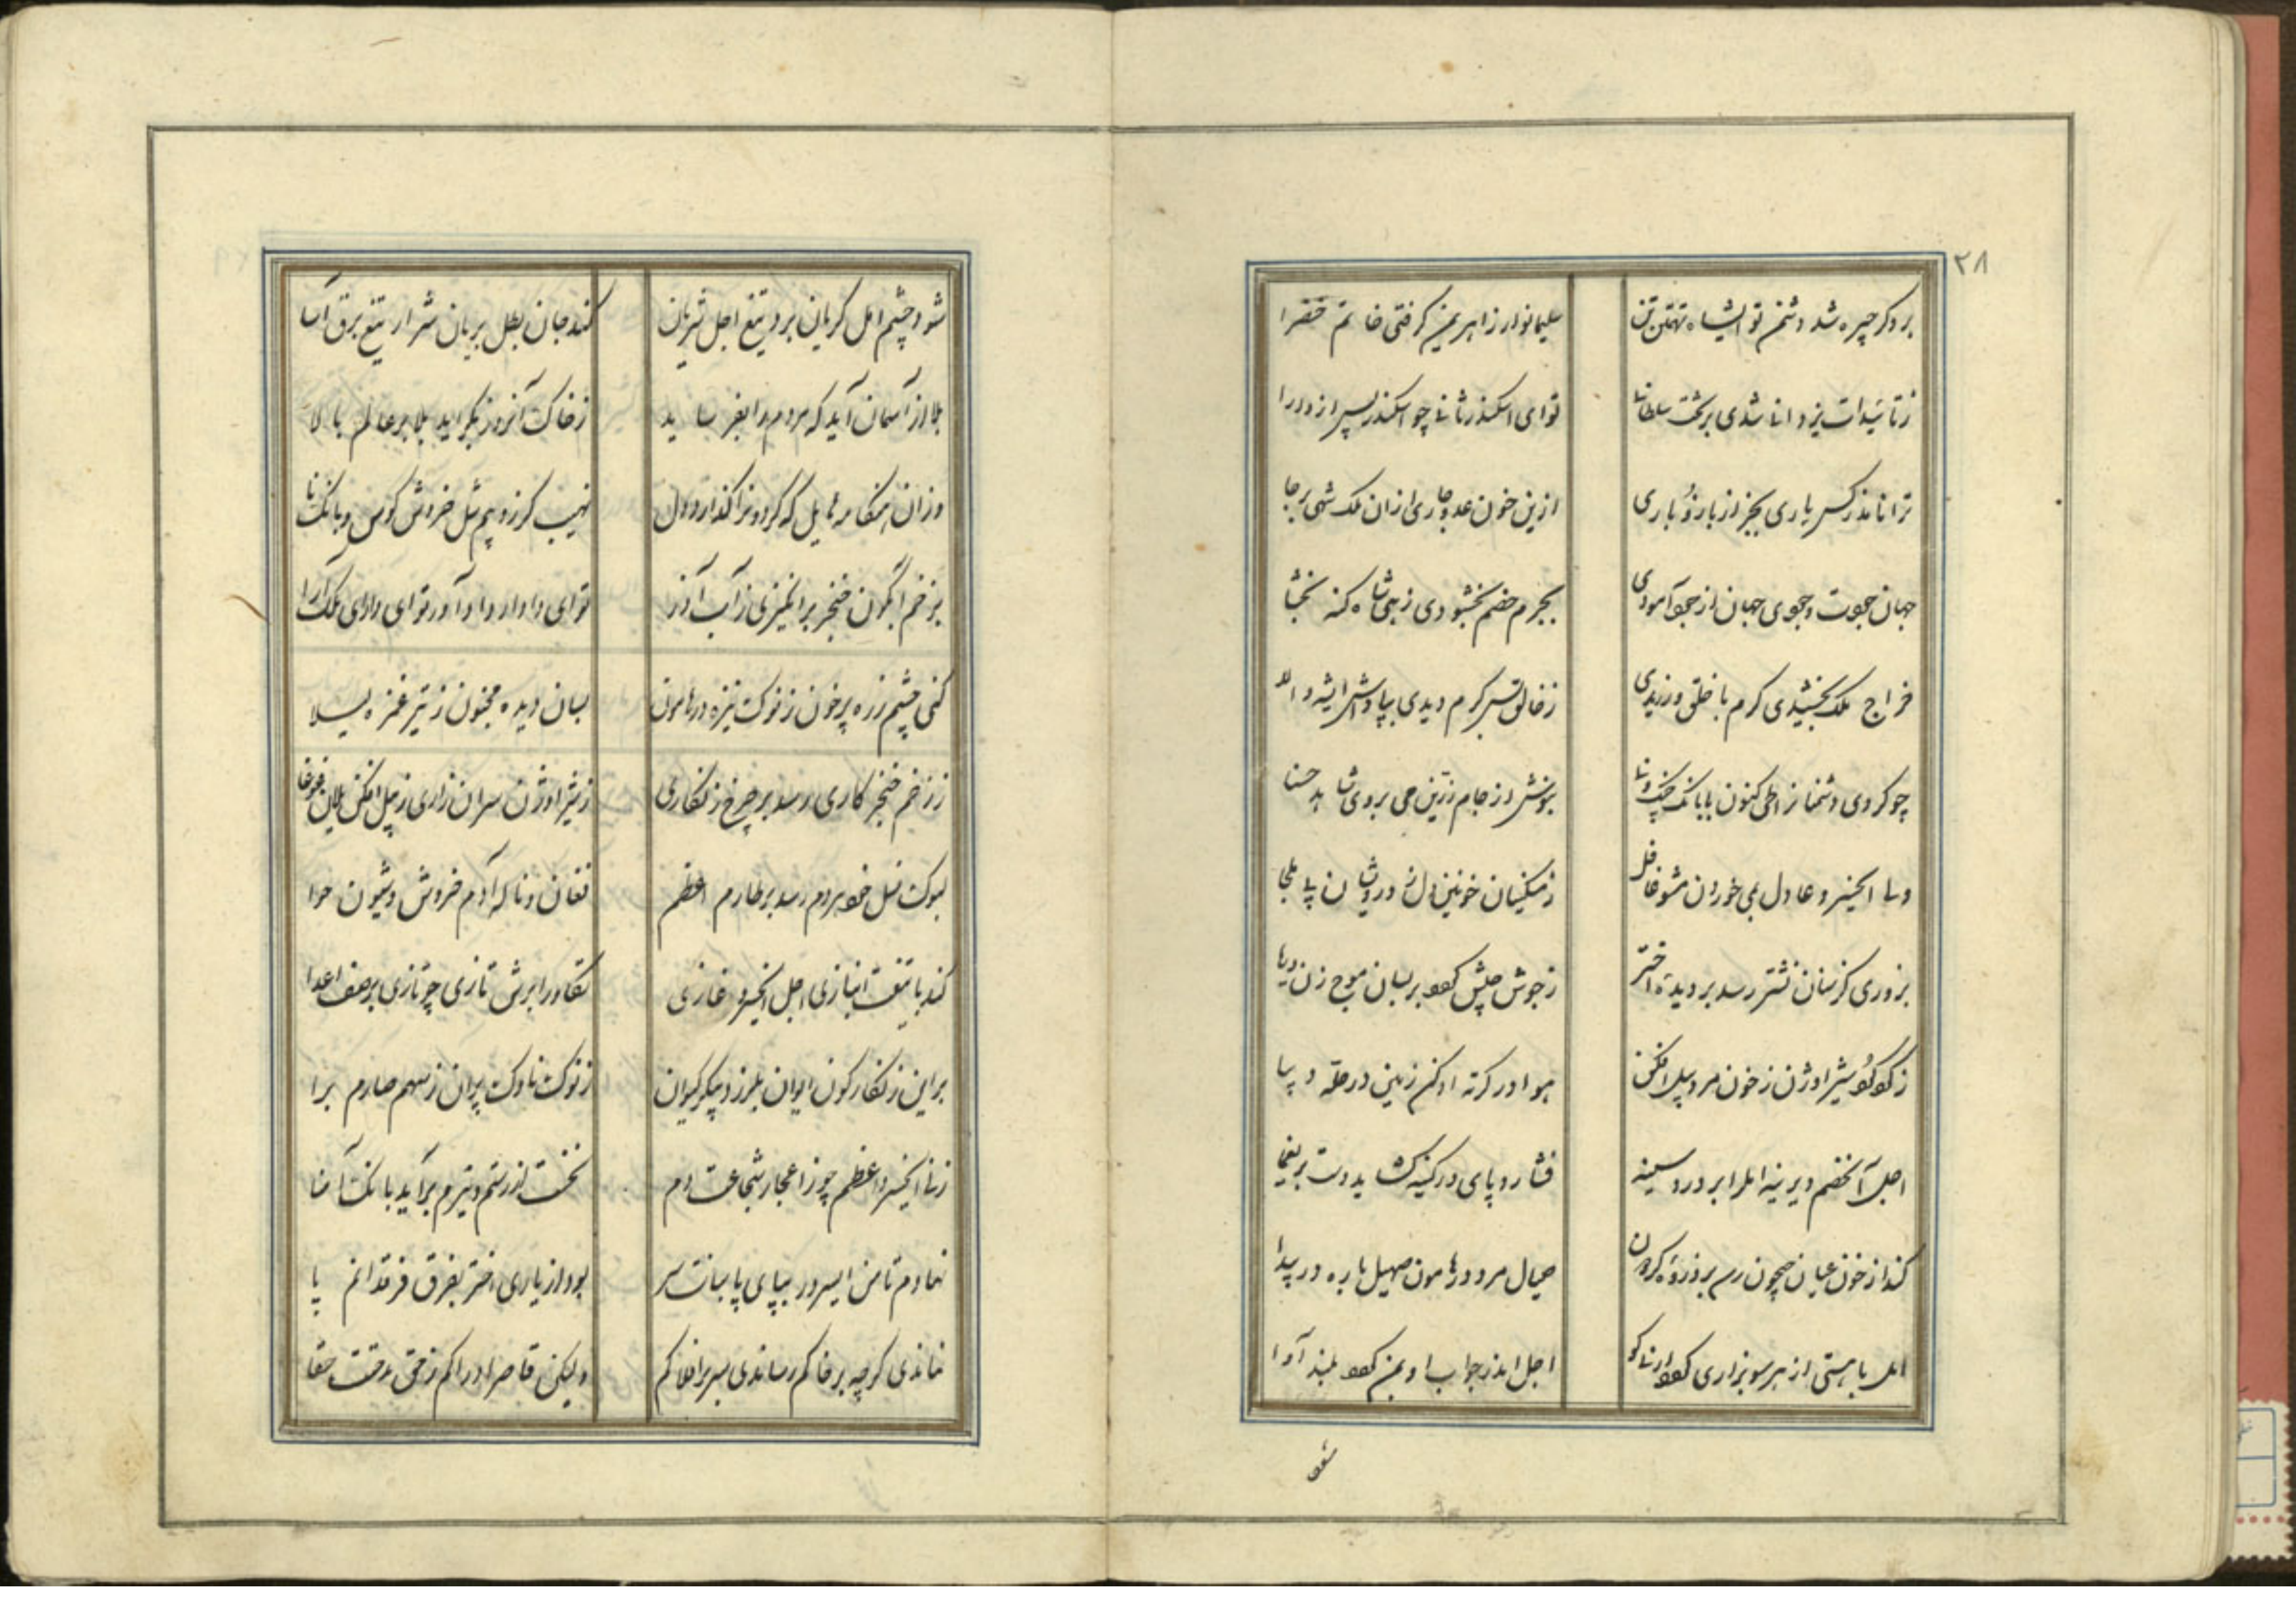 ۲۸
برو کر چیره شد دشمن تو ایشاه تهمتن تن سلیمانوار ز اهریمن گرفتی خاتم خضرا
ز تائیدات یزدانا شدی بر تخت سلطانا تو ای اسکندر ثانا چو اسکندر پس از دارا
ترا ناند ز کس یاری بجز از بازو باری ازین خون عدو جاری ازان ملک شهی برجا
جهان جوت وجوی جهان از جو آمودی بجرم خصم بخشودی زهی شاه کنه بخشا
خراج ملک بخشیدی کرم با خلق ورزیدی ز خالق پس کرم دیدی بپاداش
چو کردی دشمنا ز اطی کنون با بانک چنک و نا بنوش از جام زرین می بروی شاهد حسنا
ایخسرو عادل بمی خوردن مشو غافل ز مسکینان خونین دل ز درویشان پا
بروزی کز سنان نشتر رسد بر دیدهٔ اختر ز جوش جیش که‌ور بسان موج زن دریا
ز شیر اوژن ز خون مرد پیل افکن هوا در کرته ادکن زمین در حله دیبا
اجل آنخصم دیرینه امل را بر درد سینه فشارد پای در کینه کشاید دست بر یغما
کند از خون عیان جیحون رسد بر ذروهٔ کردون مرد در هامون صهیل باره در بیدا
امل با هستی از هر سو بزاری اجل اندر جواب او بلند آوا
شود
شود چشم امل کریان برد تیغ اجل شریان کند جان یطل بریان شرار تیغ برق آسا
بلا از آسمان آید که مردم را بفرساید ز خاک آنروز بکراید بلا بر عالم بالا
وزان هنکامه هایل که کردونرا کدازد دل نهیب کرز ویم شل خروش کوس و بانک نا
بزخم آبکون خنجر برانکیزی ز آب آذر تو ای دادار داد آور تو ای دارای ملک آرا
کنی چشم زره پر خون ز نوک نیزه در هامون بسان دیده مجنون ز تیر غمزه لیلا
ز زخم خنجر کاری رسد بر چرخ زنکاری ز شیر اوژن سران زاری ز پیل افکن یلان غوغا
بسوک نسل خود هردم رسد بر طارم اعظم فغان و ناله آدم خروش و شیون حوا
کند با تیغت انبازی اجل ایخسرو غازی تکاور ابرش تازی چو تازی بر صف اعدا
بر این زنکارکون ایوان بلرزد پیکر کیوان ز نوک ناوک پران ز سهم صارم برا
زند ایخسرو اعظم چو ز اعجاز شجاعت دم نخست از رستم و نیرم برآید بانک آمنا
نهادم تا من ایسرور بپای پاسبانت سر بود از یاری اختر بفرق فرقدانم پا
نماندی کرچه بر خاکم رساندی سر بر افلاکم ولیکن قاصر ادراکم ز حق مدحتت حقا